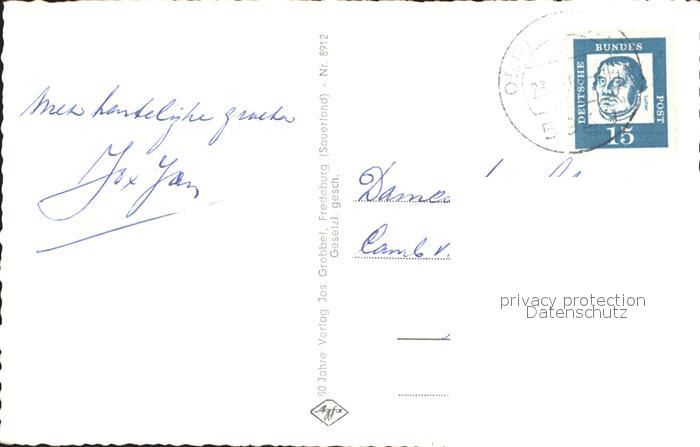 Met hartelijke groeten
Dames
Camb v.
50 Jahre Verlag Jos. Grobbel, Fredeburg (Sauerland) - Nr. 8912
Gesetzl. gesch.
Agfa
DEUTSCHE
BUNDES
POST
Luther
15
privacy protection
Datenschutz